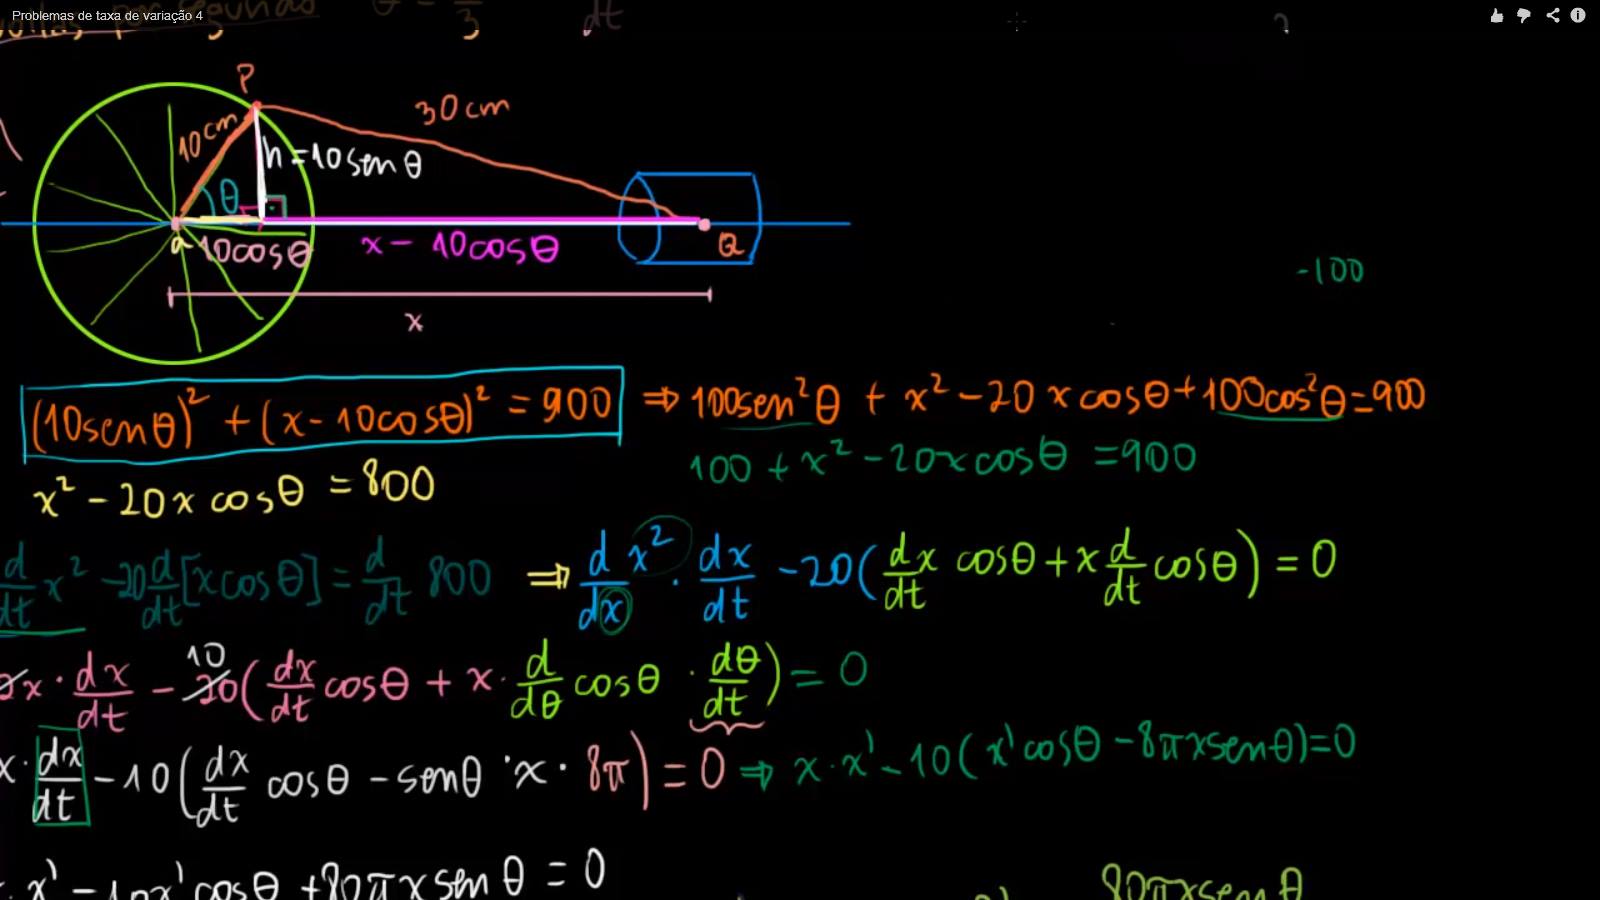 Problemas de taxa de variação 4
voltas por segundo θ = π/3 dt
P
30cm
10cm
h=10senθ
θ
a 10cosθ x - 10cosθ Q
-100
x
(10senθ)² + (x-10cosθ)² = 900 ⇒ 100sen²θ + x² - 20xcosθ + 100cos²θ = 900
x² - 20x cosθ = 800 100 + x² - 20xcosθ = 900
d/dt x² - 20 d/dt [x cosθ] = d/dt 800 ⇒ d/dx x² · dx/dt - 20(dx/dt cosθ + x d/dt cosθ) = 0
10
2x · dx/dt - 20(dx/dt cosθ + x · d/dθ cosθ · dθ/dt) = 0
x · dx/dt - 10(dx/dt cosθ - senθ · x · 8π) = 0 ⇒ x · x' - 10(x'cosθ - 8πxsenθ) = 0
· x' - 10x'cosθ + 80πxsenθ = 0 80πxsenθ